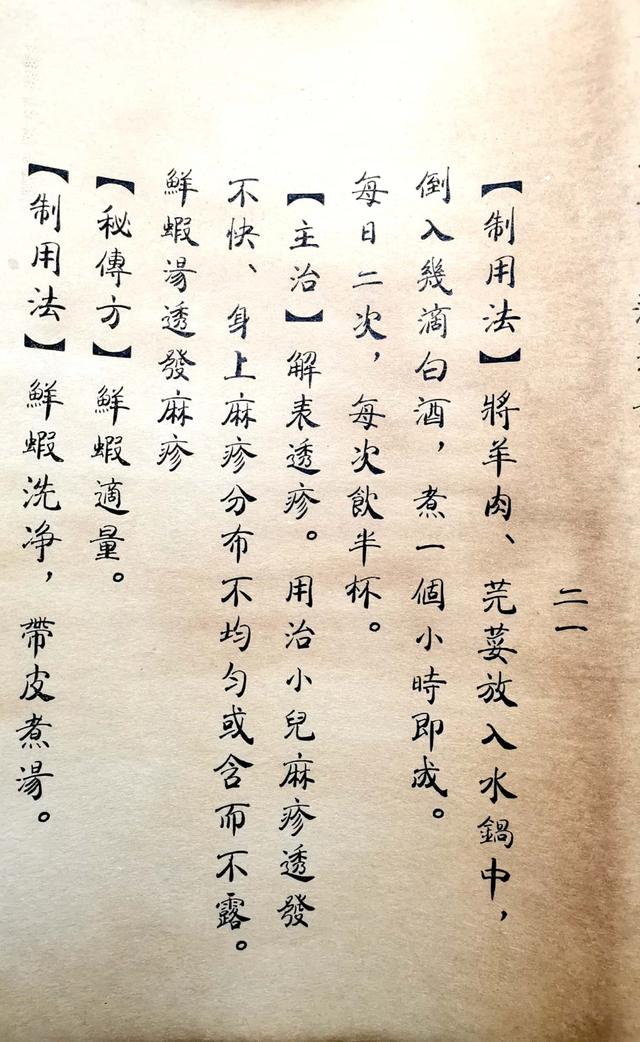 二一
【制用法】將羊肉、芫荽放入水鍋中，
倒入幾滴白酒，煮一個小時即成。
每日二次，每次飲半杯。
【主治】解表透疹。用治小兒麻疹透發
不快、身上麻疹分布不均匀或含而不露。
鮮蝦湯透發麻疹
【秘傳方】鮮蝦適量。
【制用法】鮮蝦洗净，帶皮煮湯。